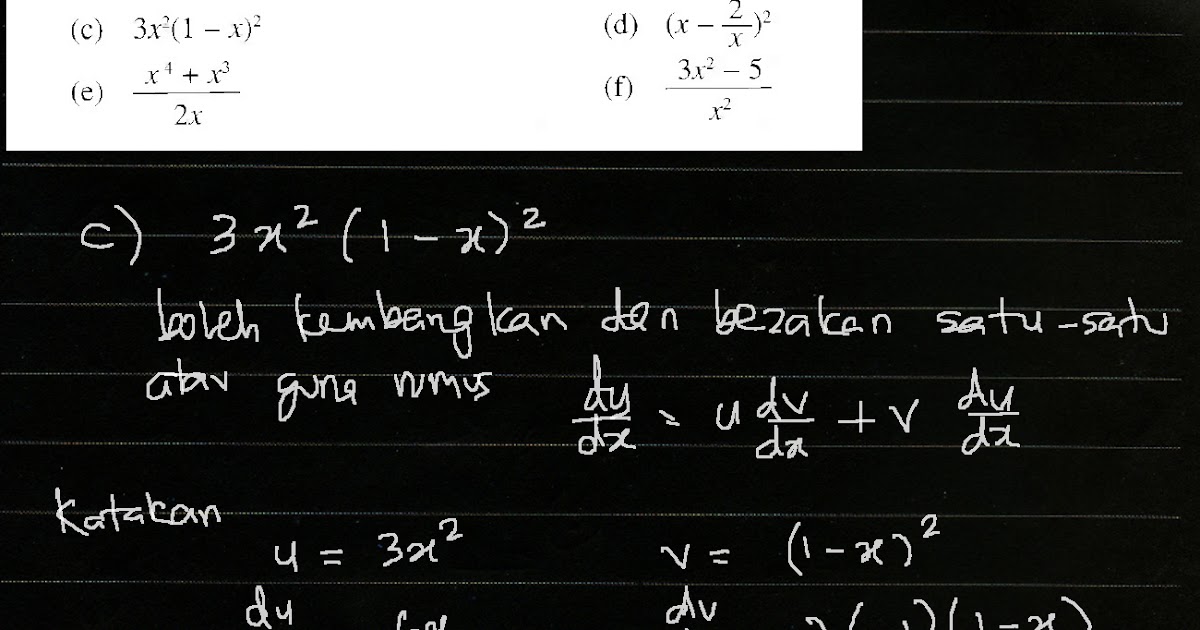 (c) 3x²(1 – x)² (d) (x – 2/x)²
(e) (x⁴ + x³)/2x (f) (3x² – 5)/x²
c) 3x² (1 – x)²
boleh kembangkan dan bezakan satu-satu
atau guna rumus dy/dx = u dv/dx + v du/dx
Katakan
u = 3x² v = (1 – x)²
du dv